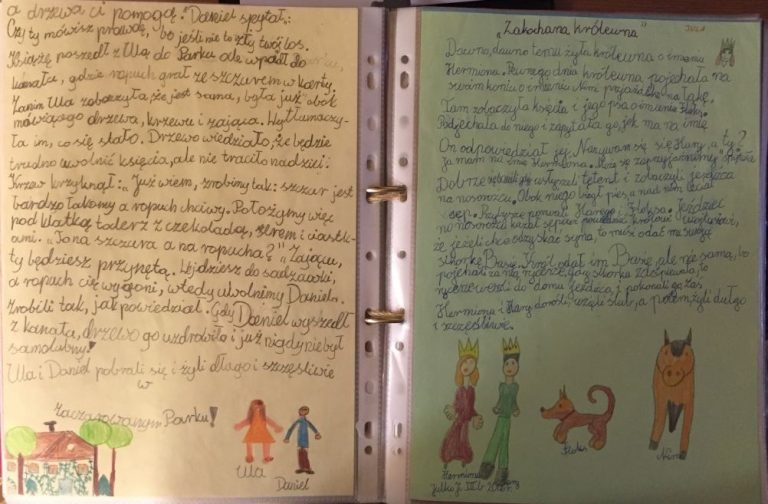 a drzewa ci pomogą." Daniel spytał:
Czy ty mówisz prawdę, bo jeśli nie to zły twój los.
Książę poszedł z Ulą do Parku ale wpadł do
kanału, gdzie ropuch grał ze szczurem w karty.
Zanim Ula zobaczyła, że jest sama, była już obok
mówiącego drzewa, krzewu i zająca. Wytłumaczy-
ła im, co się stało. Drzewo wiedziało, że będzie
trudno uwolnić księcia, ale nie traciło nadziei.
Krzew krzyknął: „Już wiem, zrobimy tak: szczur jest
bardzo łakomy a ropuch chciwy. Położymy więc
pod klatką talerz z czekoladą, serem i ciastk-
ami. „To na szczura a na ropucha?" „Zającu,
ty będziesz przynętą. Wejdziesz do sadzawki,
a ropuch cię wygoni, wtedy uwolnimy Daniela.
Zrobili tak, jak powiedział. Gdy Daniel wyszedł
z kanału, drzewo go uzdrowiło i już nigdy nie był
samolubny!
Ula i Daniel pobrali się i żyli długo i szczęśliwie
w
Zaczarowanym Parku!
Ula
Daniel
„Zakochana królewna"
JULA
Dawno, dawno temu żyła królewna o imieniu
Hermiona. Pewnego dnia królewna pojechała na
swoim koniu o imieniu Nimi przejażdżkę na łąkę.
Tam zobaczyła księcia i jego psa o imieniu Floks.
Podjechała do niego i zapytała go, jak ma na imię
On odpowiedział jej: Nazywam się Hary, a ty?
Ja mam na imię Hermiona.
Dobrze usłyszeli tętent i zobaczyli jeźdźca
na nosorożcu. Obok niego biegł pies, a nad nim leciał
sęp. porwali Harego i Floksa. Jeździec
na nosorożcu kazał sępowi królowi
że jeżeli chce odzyskać syna, to musi odał mu swoją
córkę Basię. Król odał im Basię, ale nie samą, bo
pojechali za nią rycerze, gdy to
rycerze weszli do domu jeźdźca, i pokonali go
Hermiona i Hary dorośli, wzięli ślub, a potem żyli długo
i szczęśliwie.
Hermiona
Floks
Julka J. III b